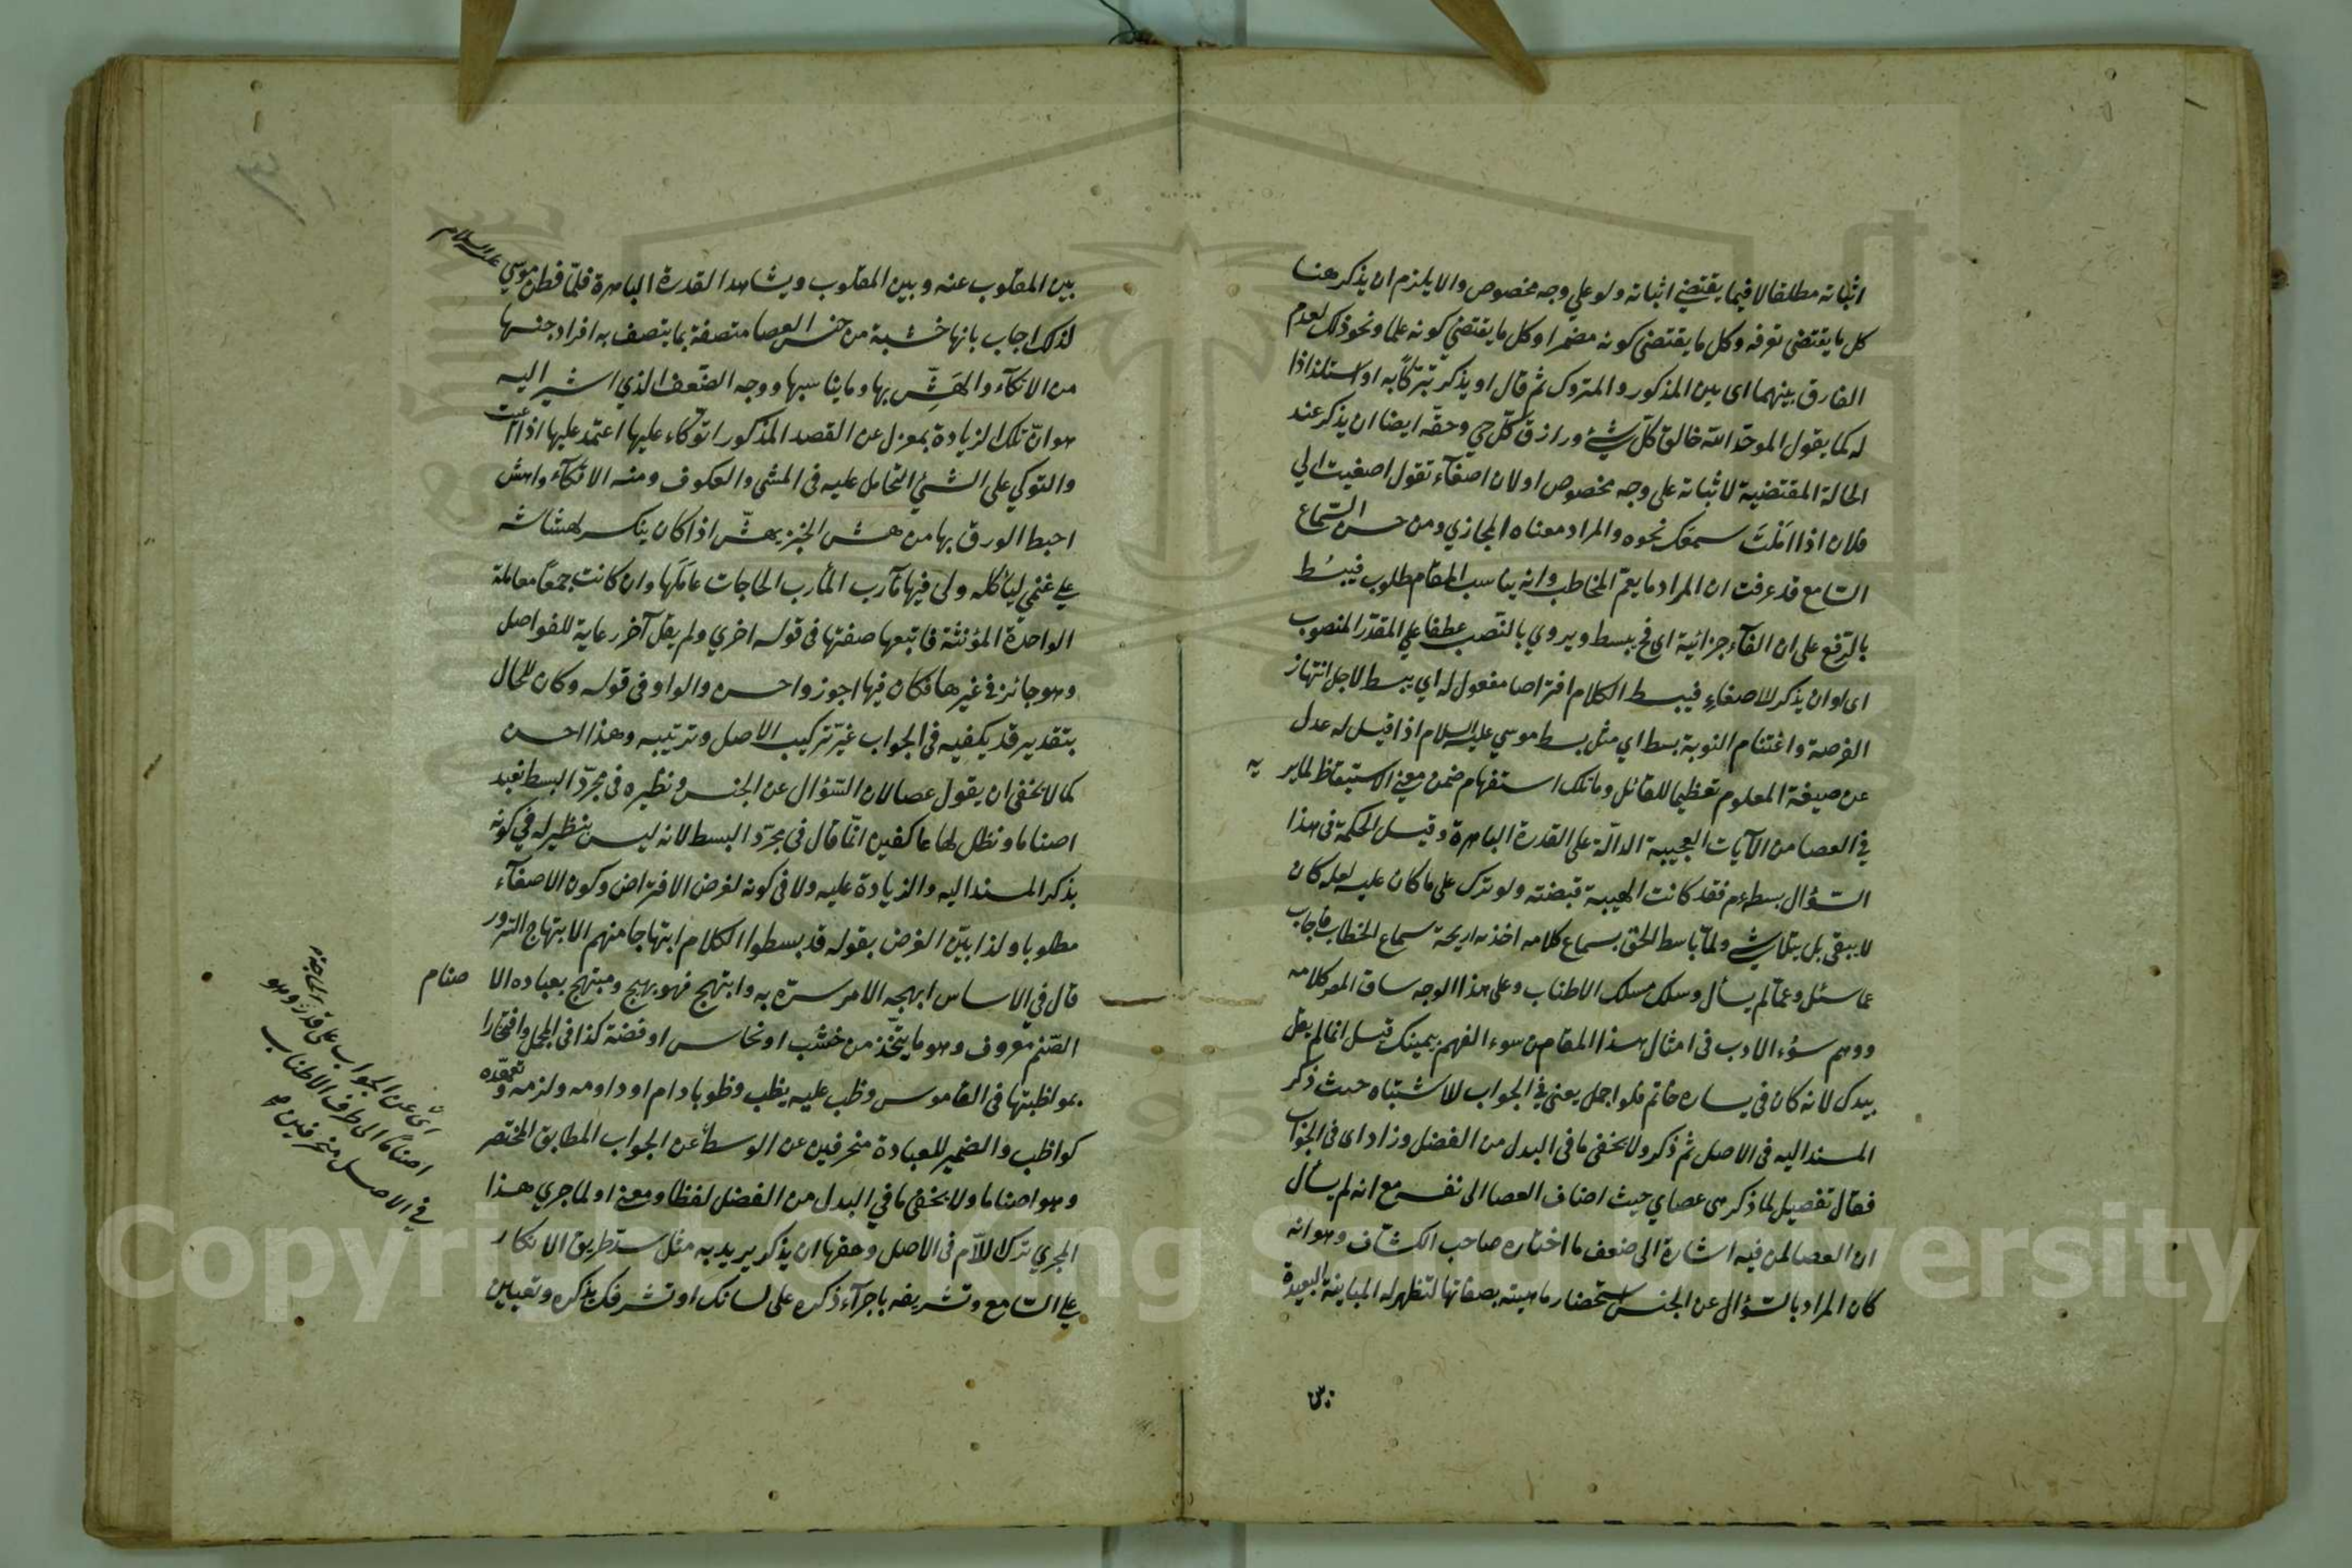 اثباته مطلقا لا فيما يقتضي اثباته ولو على وجه مخصوص والا يلزم ان يذكر هنا
كل ما يقتضى تعرفه وكل ما يقتضى كونه مضمرا وكل ما يقتضي كونه علما ونحو ذلك لعدم
الفارق بينهما اى بين المذكور والمتروك ثم قال او يذكر تبركا به او استلذاذا
له كما يقول الموحد الله خالق كل شيء ورازق كل حي وحقه ايضا ان يذكر عند
الحالة المقتضية لاثباته على وجه مخصوص اولان اصغاء تقول اصغيت الى
فلان اذا املت سمعك نحوه والمراد معناه المجازي ومن حسن السماع
السامع قد عرفت ان المراد ما يعم المخاطب وانه يناسب المقام مطلوب فيبسط
بالرفع على ان الفاء جزائية اى فح يبسط ويروي بالنصب عطفا على المقدر المنصوب
اى او ان يذكر لاصغاء فيبسط الكلام افتراصا مفعول له اي يبسط لاجل انتهاز
الفرصة واغتنام النوبة بسط اي مثل بسط موسي عليه السلام اذا قيل له عدل
عن صيغة المعلوم تعظيما للقائل وما تلك استفهام ضمن معني الاستيقاظ لما ير يه
في العصا من الآيات العجيبة الدالة على القدرة الباهرة وقيل الحكمة فى هذا
السؤال بسطه م فقد كانت الهيبة قبضته ولو ترك على ما كان عليه لعله كان
لا يبقى بل يتلاشي ولما باسط الحق بسماع كلامه اخذته اريحة سماع الخطاب فاجاب
عما سئل وعما لم يسأل وسلك مسلك الاطناب وعلى هذا الوجه ساق المص كلامه
ووهم سوء الادب فى امثال هذا المقام من سوء الفهم بيمينك قيل انما لم يقل
بيدك لانه كان فى يساره خاتم فلو اجمل يعنى في الجواب للاشتباه حيث ذكر
المسند اليه فى الاصل ثم ذكر ولا يخفى ما فى البدل من الفضل وزاد اى فى الجواب
فقال تفصيل لما ذكر هى عصاي حيث اضاف العصا الى نفسه مع انه لم يسأل
ان العصا لمن فيه اشارة الى ضعف ما اختاره صاحب الكشاف وهو انه
كان المراد بالسؤال عن الجنس استحضار ماهيته بصفاتها لتظهر له المباينة البعيدة
بين
بين المقلوب عنه وبين المقلوب ويشاهد القدرة الباهرة فلما فطن موسي عليه السلام
لذلك اجاب بانها خشبة من جنس العصا متصفة بما يتصف به افراد جنسها
من الاتكاء والهش بها وما يناسبها ووجه الضعف الذي اشير اليه
هو ان تلك الزيادة بمعزل عن القصد المذكور اتوكاء عليها اعتمد عليها اذا
والتوكي على الشيء التحامل عليه فى المشى والعكوف ومنه الاتكاء واهش
احبط الورق بها من هش الخبز يهش اذا كان ينكسر لهشاشة
على غنمي ليأكله ولى فيها مآرب المآرب الحاجات عاملها وان كانت جمعا معاملة
الواحدة المؤنثة فاتبعها صفتها فى قوله اخري ولم يقل آخر رعاية للفواصل
وهو جائز في غيرها فكان فيها اجوز واحسن والواو فى قوله وكان للحال
بتقدير قد يكفيه فى الجواب غير تركيب الاصل وترتيبه وهذا احسن
كما لا يخفى ان يقول عصا لان السؤال عن الجنس ونظيره فى مجرد البسط نعبد
اصناما ونظل لها عاكفين انما قال فى مجرد البسط لانه ليس بنظير له في كونه
بذكر المسند اليه والزيادة عليه ولا فى كونه لغرض الافتراض وكون الاصغاء
مطلوبا ولذا بين الغرض بقوله قد بسطوا الكلام ابتهاجا منهم الابتهاج السرور
قال في الاساس ابهجه الامر سره به وابتهج فهو بهيج ومبتهج بعباده الا صنام
الصنم معروف وهو ما يتخذ من خشب او نحاس او فضة كذا فى المجمل وافتخارا
بمواظبتها فى القاموس وظب عليه يظب وظوبا دام او داومه ولزمه وتعهده
كواظب والضمير للعبادة منحرفين عن الوسط عن الجواب المطابق المختصر
وهو اصناما ولا يخفى ما في البدل من الفضل لفظا ومعنى اولما جري هذا
المجري ترك اللام فى الاصل وحقها ان يذكر يريد به مثل سد طريق الانكار
على السامع وتشريفه باجراء ذكره على لسانك او تشرفك بذكره وتعيين
اى عن الجواب على قدر الحاجة وهو
اصناما الى طرف الاطناب
في الاصل منحرفين